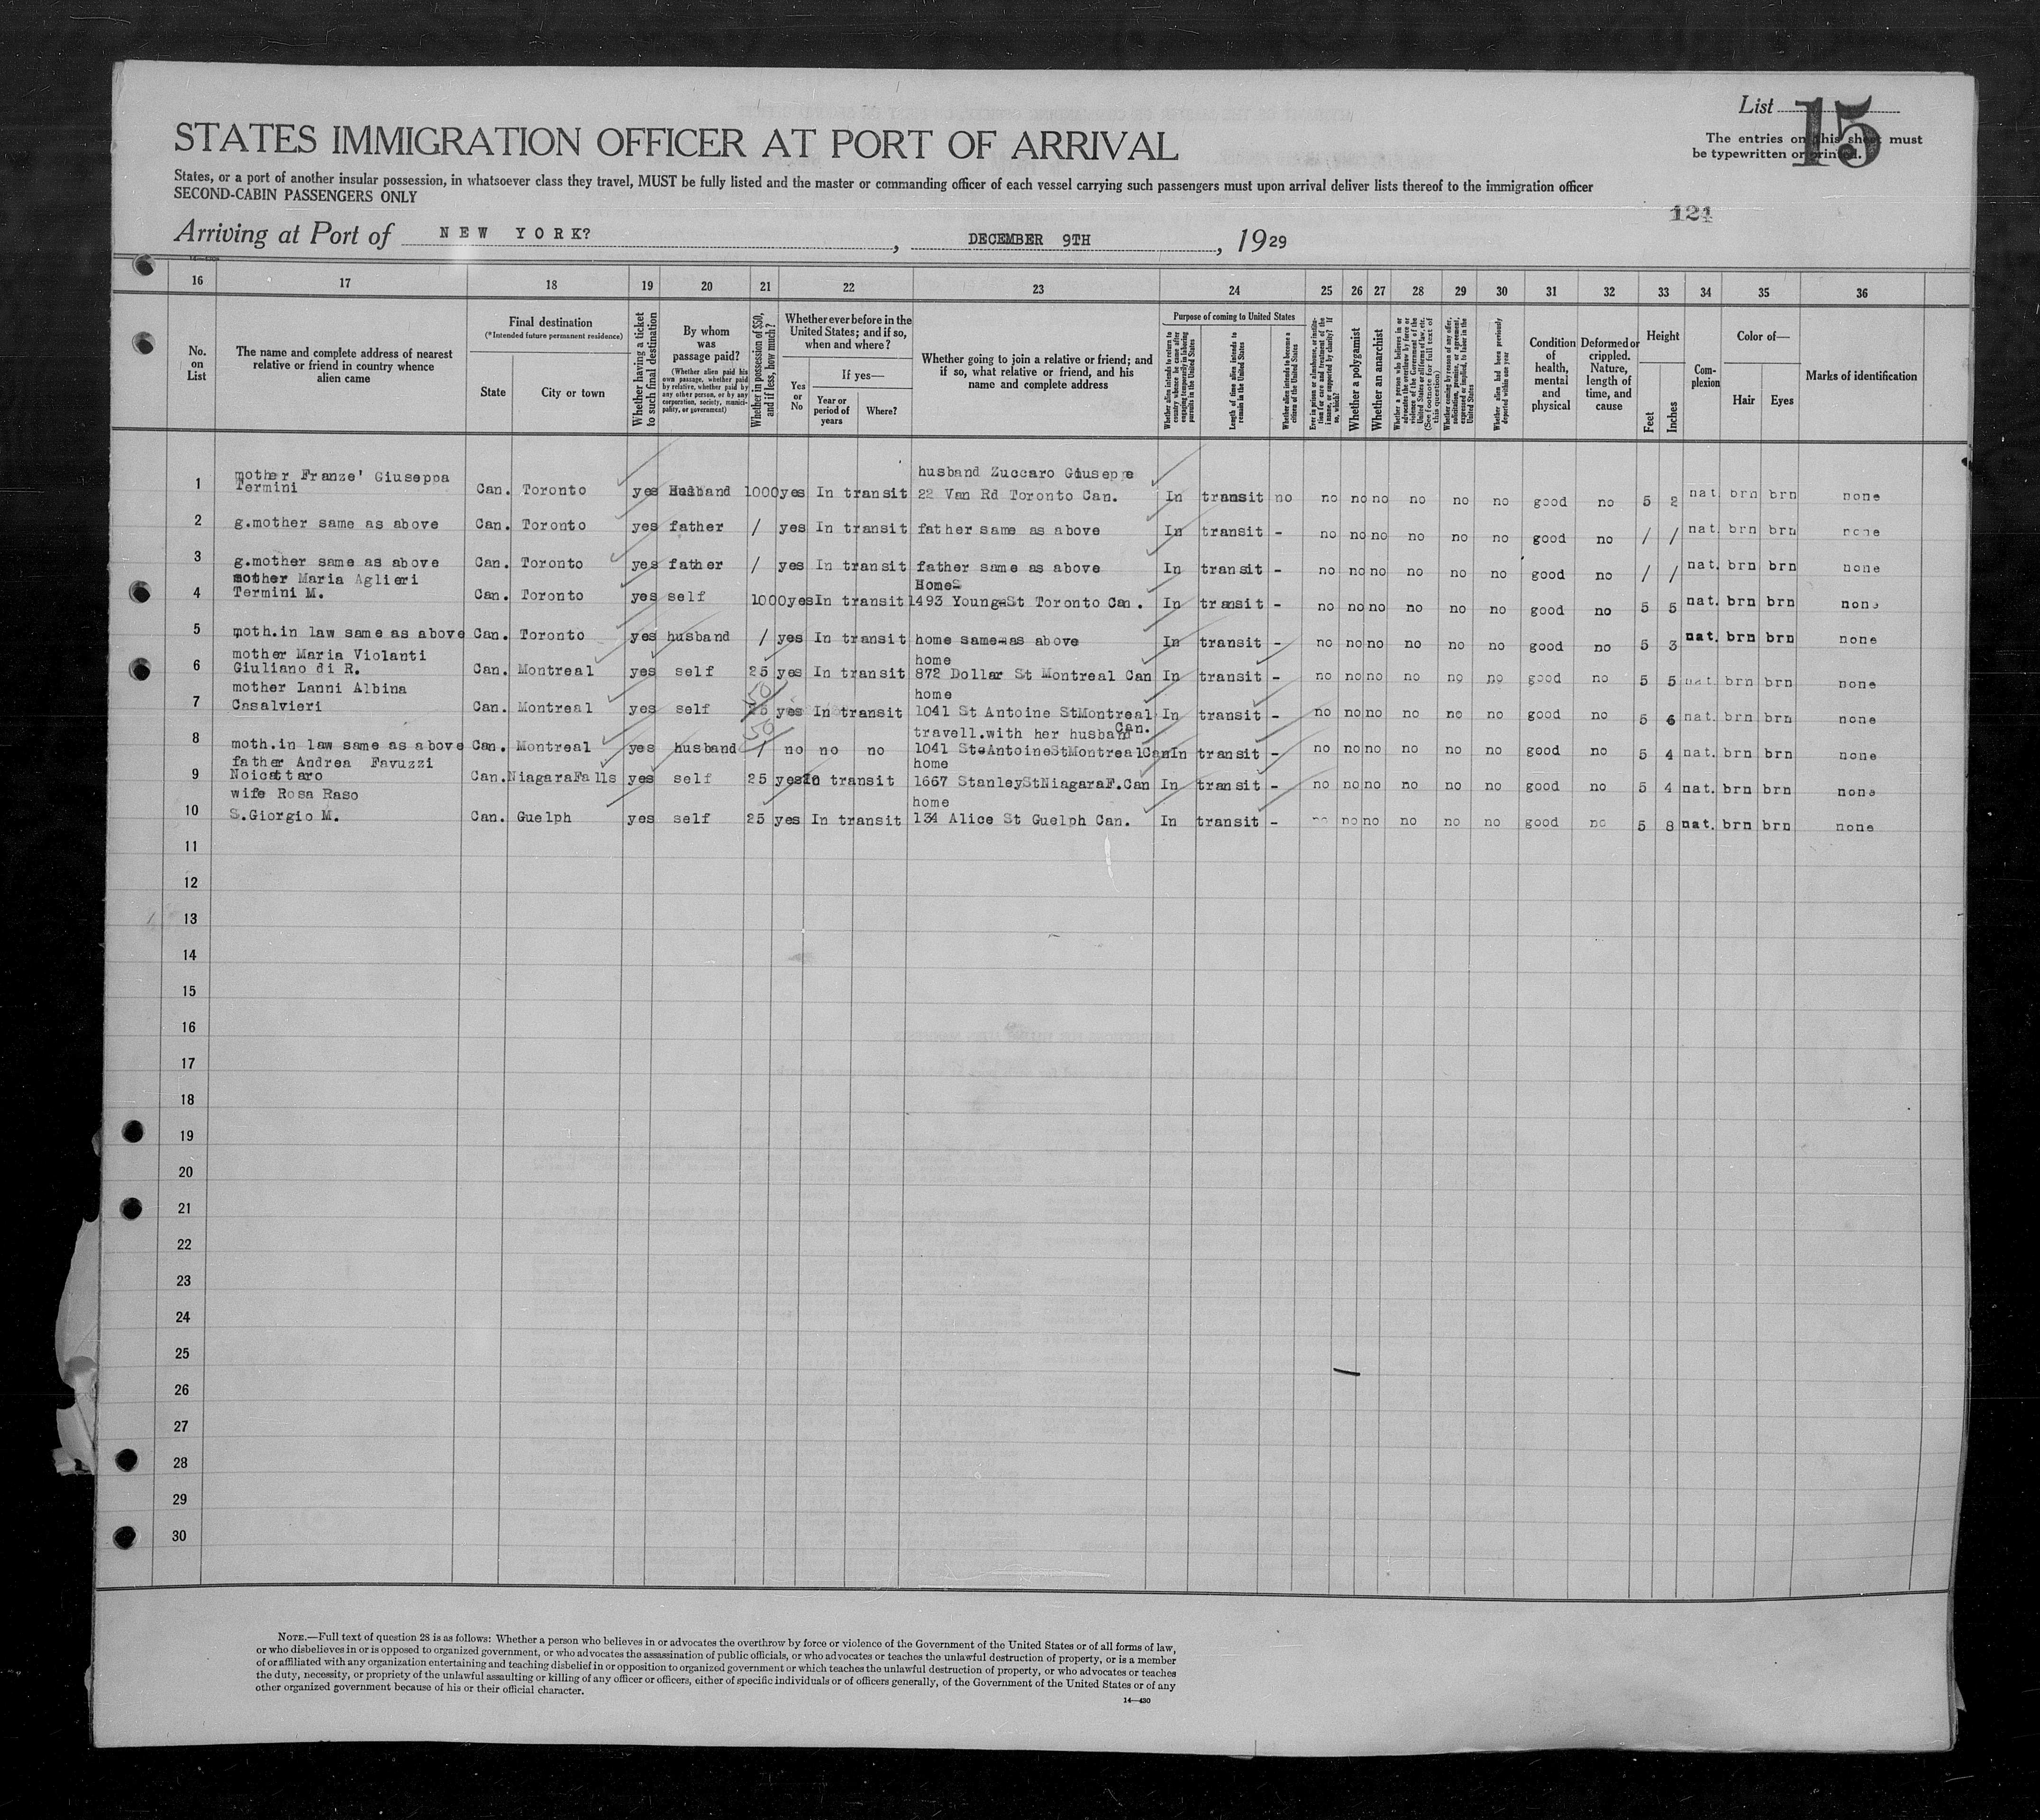 List 15
The entries on this sheet must
be typewritten or printed.
STATES IMMIGRATION OFFICER AT PORT OF ARRIVAL
States, or a port of another insular possession, in whatsoever class they travel, MUST be fully listed and the master or commanding officer of each vessel carrying such passengers must upon arrival deliver lists thereof to the immigration officer
SECOND-CABIN PASSENGERS ONLY
124
Arriving at Port of NEW YORK?, DECEMBER 9TH, 1929
16 17 18 19 20 21 22 23 24 25 26 27 28 29 30 31 32 33 34 35 36
No. on List
The name and complete address of nearest relative or friend in country whence alien came
Final destination
(*Intended future permanent residence)
State
City or town
Whether having a ticket to such final destination
By whom was passage paid?
(Whether alien paid his own passage, whether paid by relative, whether paid by any other person, or by any corporation, society, municipality, or government)
Whether in possession of $50, and if less, how much?
Whether ever before in the United States; and if so, when and where?
Yes or No
If yes—
Year or period of years
Where?
Whether going to join a relative or friend; and if so, what relative or friend, and his name and complete address
Purpose of coming to United States
Whether alien intends to return to country whence he came after engaging temporarily in laboring pursuits in the United States
Length of time alien intends to remain in the United States
Whether alien intends to become a citizen of the United States
Ever in prison or almshouse, or institution for care and treatment of the insane, or supported by charity? If so, which?
Whether a polygamist
Whether an anarchist
Whether a person who believes in or advocates the overthrow by force or violence of the Government of the United States or all forms of law, etc. (See footnote for full text of this question)
Whether coming by reason of any offer, solicitation, promise, or agreement, expressed or implied, to labor in the United States
Whether alien had been previously deported within one year
Condition of health, mental and physical
Deformed or crippled. Nature, length of time, and cause
Height
Feet
Inches
Complexion
Color of—
Hair
Eyes
Marks of identification
mother Franze' Giuseppa husband Zuccaro Giuseppe
1 Termini Can. Toronto yes Husband 1000 yes In transit 22 Van Rd Toronto Can. In transit no no no no no no no good no 5 2 nat. brn brn none
2 g.mother same as above Can. Toronto yes father / yes In transit father same as above In transit - no no no no no no good no / / nat. brn brn none
3 g.mother same as above Can. Toronto yes father / yes In transit father same as above In transit - no no no no no no good no / / nat. brn brn none
mother Maria Aglieri Home
4 Termini M. Can. Toronto yes self 1000 yes In transit 1493 Young St Toronto Can. In transit - no no no no no no good no 5 5 nat. brn brn none
5 moth.in law same as above Can. Toronto yes husband / yes In transit home same as above In transit - no no no no no no good no 5 3 nat. brn brn none
mother Maria Violanti home
6 Giuliano di R. Can. Montreal yes self 25 yes In transit 872 Dollar St Montreal Can In transit - no no no no no no good no 5 5 nat. brn brn none
mother Lanni Albina 50 home
7 Casalvieri Can. Montreal yes self 25 yes In transit 1041 St Antoine St Montreal Can. In transit - no no no no no no good no 5 6 nat. brn brn none
50 travell.with her husband
8 moth.in law same as above Can. Montreal yes husband / no no no 1041 St AntoineStMontrealCan In transit - no no no no no no good no 5 4 nat. brn brn none
father Andrea Favuzzi home
9 Noicattaro Can. NiagaraFalls yes self 25 yes In transit 1667 StanleyStNiagaraF.Can In transit - no no no no no no good no 5 4 nat. brn brn none
wife Rosa Raso home
10 S.Giorgio M. Can. Guelph yes self 25 yes In transit 134 Alice St Guelph Can. In transit - no no no no no no good no 5 8 nat. brn brn none
11
12
13
14
15
16
17
18
19
20
21
22
23
24
25
26
27
28
29
30
NOTE.—Full text of question 28 is as follows: Whether a person who believes in or advocates the overthrow by force or violence of the Government of the United States or of all forms of law,
or who disbelieves in or is opposed to organized government, or who advocates the assassination of public officials, or who advocates or teaches the unlawful destruction of property, or is a member
of or affiliated with any organization entertaining and teaching disbelief in or opposition to organized government or which teaches the unlawful destruction of property, or who advocates or teaches
the duty, necessity, or propriety of the unlawful assaulting or killing of any officer or officers, either of specific individuals or of officers generally, of the Government of the United States or of any
other organized government because of his or their official character.
14—430